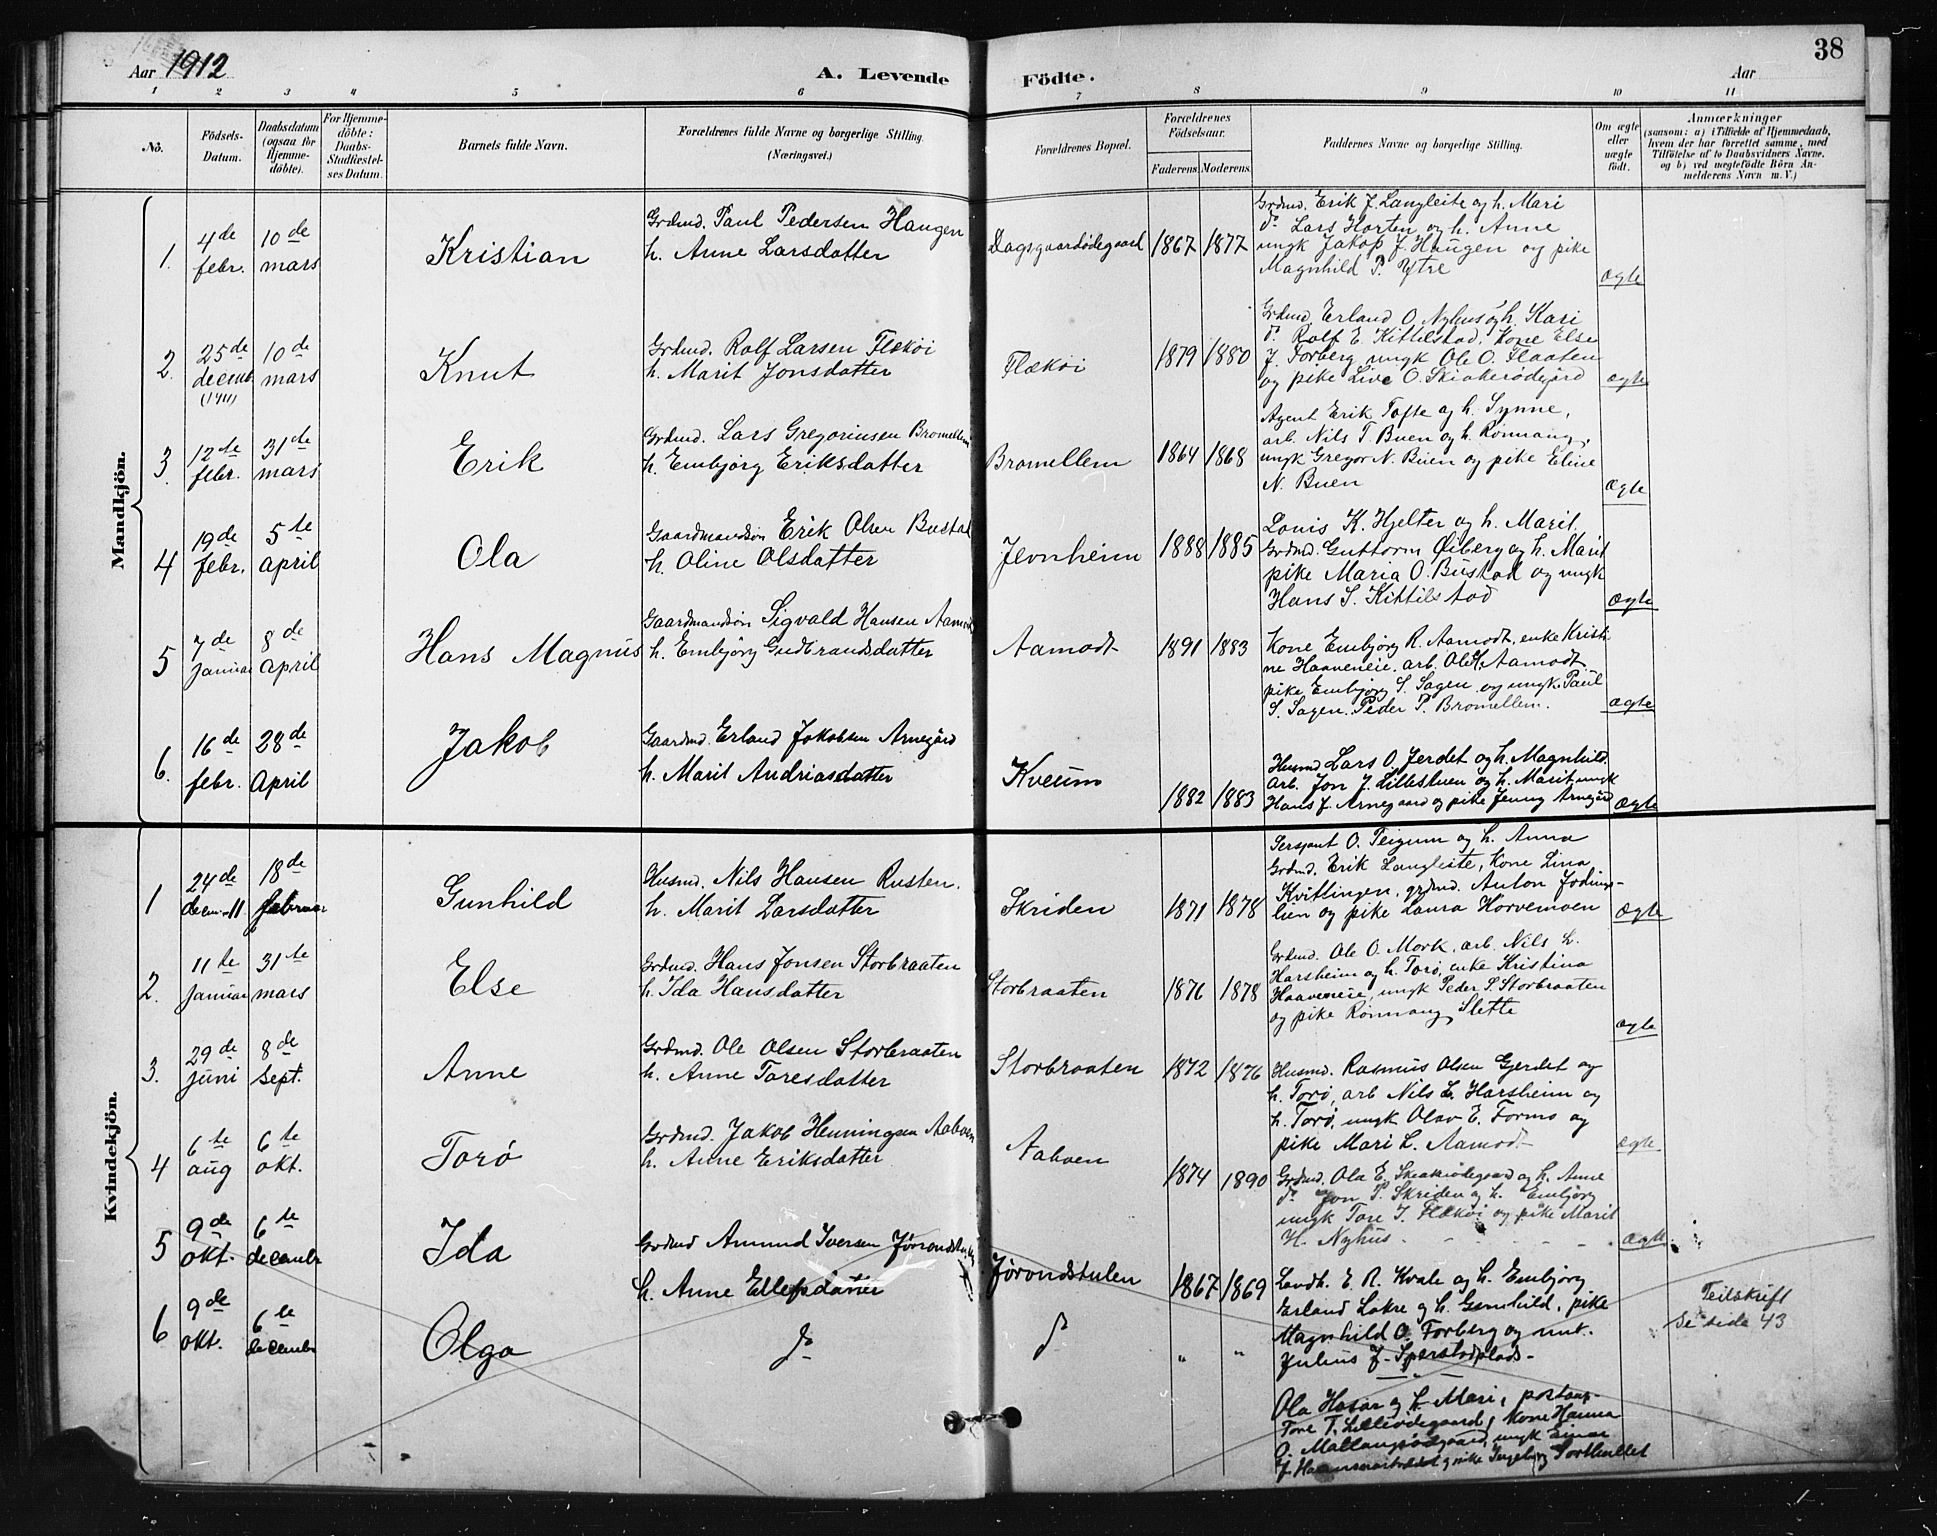 38
Aar 1912
A. Levende Födte.
Aar
1 2 3 4 5 6 7 8 9 10 11
No.
Födsels-Datum.
Daabsdatum (ogsaa for Hjemme-döbte).
For Hjemme-döbte: Daabs-Stadfæstel-ses Datum.
Barnets fulde Navn.
Forældrenes fulde Navne og borgerlige Stilling. (Næringsvei.)
Forældrenes Bopæl.
Forældrenes Födselsaar.
Faderens Moderens
Faddernes Navne og borgerlige Stilling.
Om ægte eller uægte födt.
Anmærkninger
(saasom: a) i Tilfælde af Hjemmedaab, hvem der har forrettet samme, med Tilföielse af to Daabsvidners Navne, og b) ved uegtefödte Börn An-melderens Navn m. V.)
Mandkjön.
1. 4de febr. 10de mars
Kristian
Grdmd. Paul Pedersen Haugen
h. Anne Larsdatter
Dagsgaardödegaard 1867 1877
Grdmd. Erik J. Langleite og h. Mari
do Lars Horten og h. Anne
ungk Jakop J. Haugen og pike
Magnhild P. Ytre
ægte
2. 25de decemb. (1911) 10de mars
Knut
Grdmd. Rolf Larsen Flækøi
h. Marit Jonsdatter
Flækøi 1879 1880
Grdmd. Erland O. Nyhus og h. Kari
do Rolf E. Kittilstad, Kone Else
J. Forberg, ungk Ole O. Flaaten
og pike Live O. Skiakerødegård
ægte
3. 12te febr. 31de mars
Erik
Grdmd. Lars Gregoriusen Bromellem
h. Embjörg Eriksdatter
Bromellem 1864 1868
Agent Erik Tofte og h. Synne,
arb. Nils T. Buen og h. Rønnaug,
ungk Gregor N. Buen og pike Eline
N. Buen
ægte
4 19de febr. 5te april
Ola
Gaardmandsön Erik Olsen Bustad
h. Oline Olsdatter
Jevnheim 1888 1885
Louis K. Hjelter og h. Marit,
Grdmd. Guttorm Øiberg og h. Marit
pike Maria O. Bustad og ungk
Hans S. Kittilstad
ægte
5 7de Januar 8de april
Hans Magnus
Gaardmandsön Sigvald Hansen Aamodt
h. Embjörg Gudbrandsdatter
Aamodt 1891 1883
Kone Embjörg R. Aamodt, enke Kristi-
ne Haaveneie, arb. Ole H. Aamodt
pike Embjörg S. Sagen og ungk. Paul
S. Sagen. Peder P. Bromellem.
ægte
6. 16de febr. 28de April
Jakob
Gaardmd. Erland Jakobsen Arnegård
h. Marit Andriasdatter
Kveum 1882 1883
Husmd Lars O. Jerdet og h. Magnhild.
Arb. Jon J. Lillestuen og h. Marit, ungk
Hans J. Arnegaard og pike Jenny Arnegård
Ægte
Kvindekjön.
1 24de decm. -11 18de februar
Gunhild
Husmd. Nils Hansen Rusten.
h. Marit Larsdatter
Skriden 1871 1878
Sersjant O. Teigum og h. Anna
Grdmd. Erik Langleite, Kone Lina
Kvitlingen, grdmd. Anton Jodings-
lien og pike Laura Horvemoen
Ægte
2. 11te Januar 31te mars
Else
Grdmd. Hans Jonsen Storbraaten
h. Ida Hansdatter
Storbraaten 1876 1878
Grdmd. Ole O. Mork, arb. Nils L.
Harsheim og h. Torø, enke Kristina
Haaveneie, ungk Peder S. Storbraaten
og pike Rønnaug Slette
ægte
3. 29de juni 8de Sept.
Anne
Grdmd. Ole Olsen Storbraaten
h. Anne Toresdatter
Storbraaten 1872 1876
Husmd. Rasmus Olsen Gjerdet og
h. Torø, arb Nils L. Harsheim og
h. Torø, ungk Olav E. Formo og
pike Mari L. Aamodt
ægte
4 6te aug 6te okt.
Torø
Grdmd. Jakob Henningsen Aabøen
h. Anne Eriksdatter
Aabøen 1874 1890
Grdmd. Ola E. Skeakrødegaard og h. Anne
do Jon P. Skriden og h. Embjörg
ungk Tore J. Flækøi og pike Marit
H. Nyhus
ægte
5 9de okt. 6te decembr
Ida
Grdmd Amund Iversen
h. Anne Ellefsdatter
Jørondstulen 1867 1869
Landh. E. R. Kvale og h. Embjörg
Erland Lokre og h. Gunhild, pike
Magnhild O. Forberg og
Julius J. Sperstadplads
Feilskrift
Se side 43
6 9de okt. 6te decembr
Olga
do do " "
Ola Hosar og h. Mari,
Tore T. Lilleødegaard, Kone Hanna
O. ungk Einar
pike Ingeborg